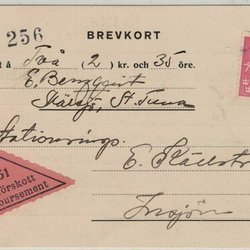 256 BREVKORT
t å Två (2) kr. och 35 öre.
E. Bengqvist
St. Tuna
Stationsinsp.
E. Källst
Insjön
51
örskott
oursement